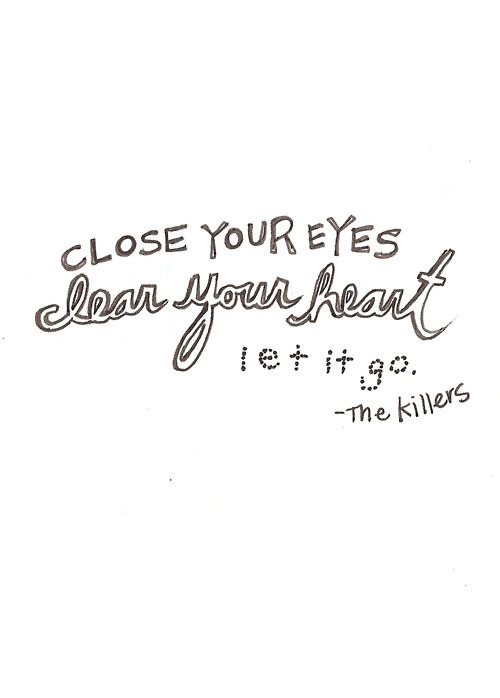 CLOSE YOUR EYES
clear your heart
let it go.
-The Killers